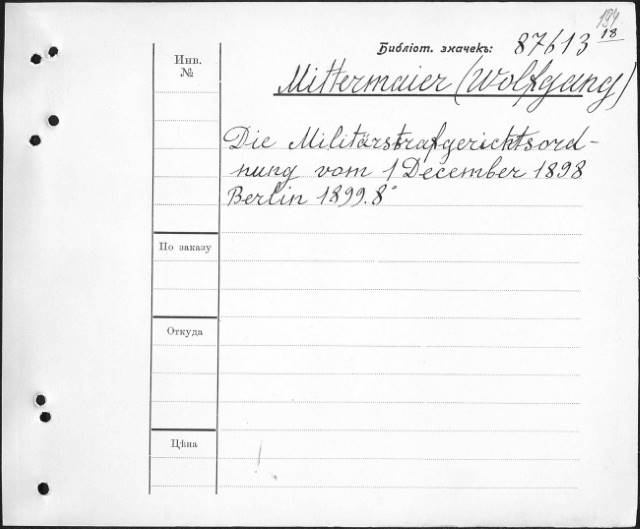 194
18
Библіот. значекъ: 87613
Инв.
№
Mittermaier (Wolfgang)
Die Militärstrafgerichtsord-
nung vom 1 December 1898
Berlin 1899. 8°
По заказу
Откуда
Цѣна